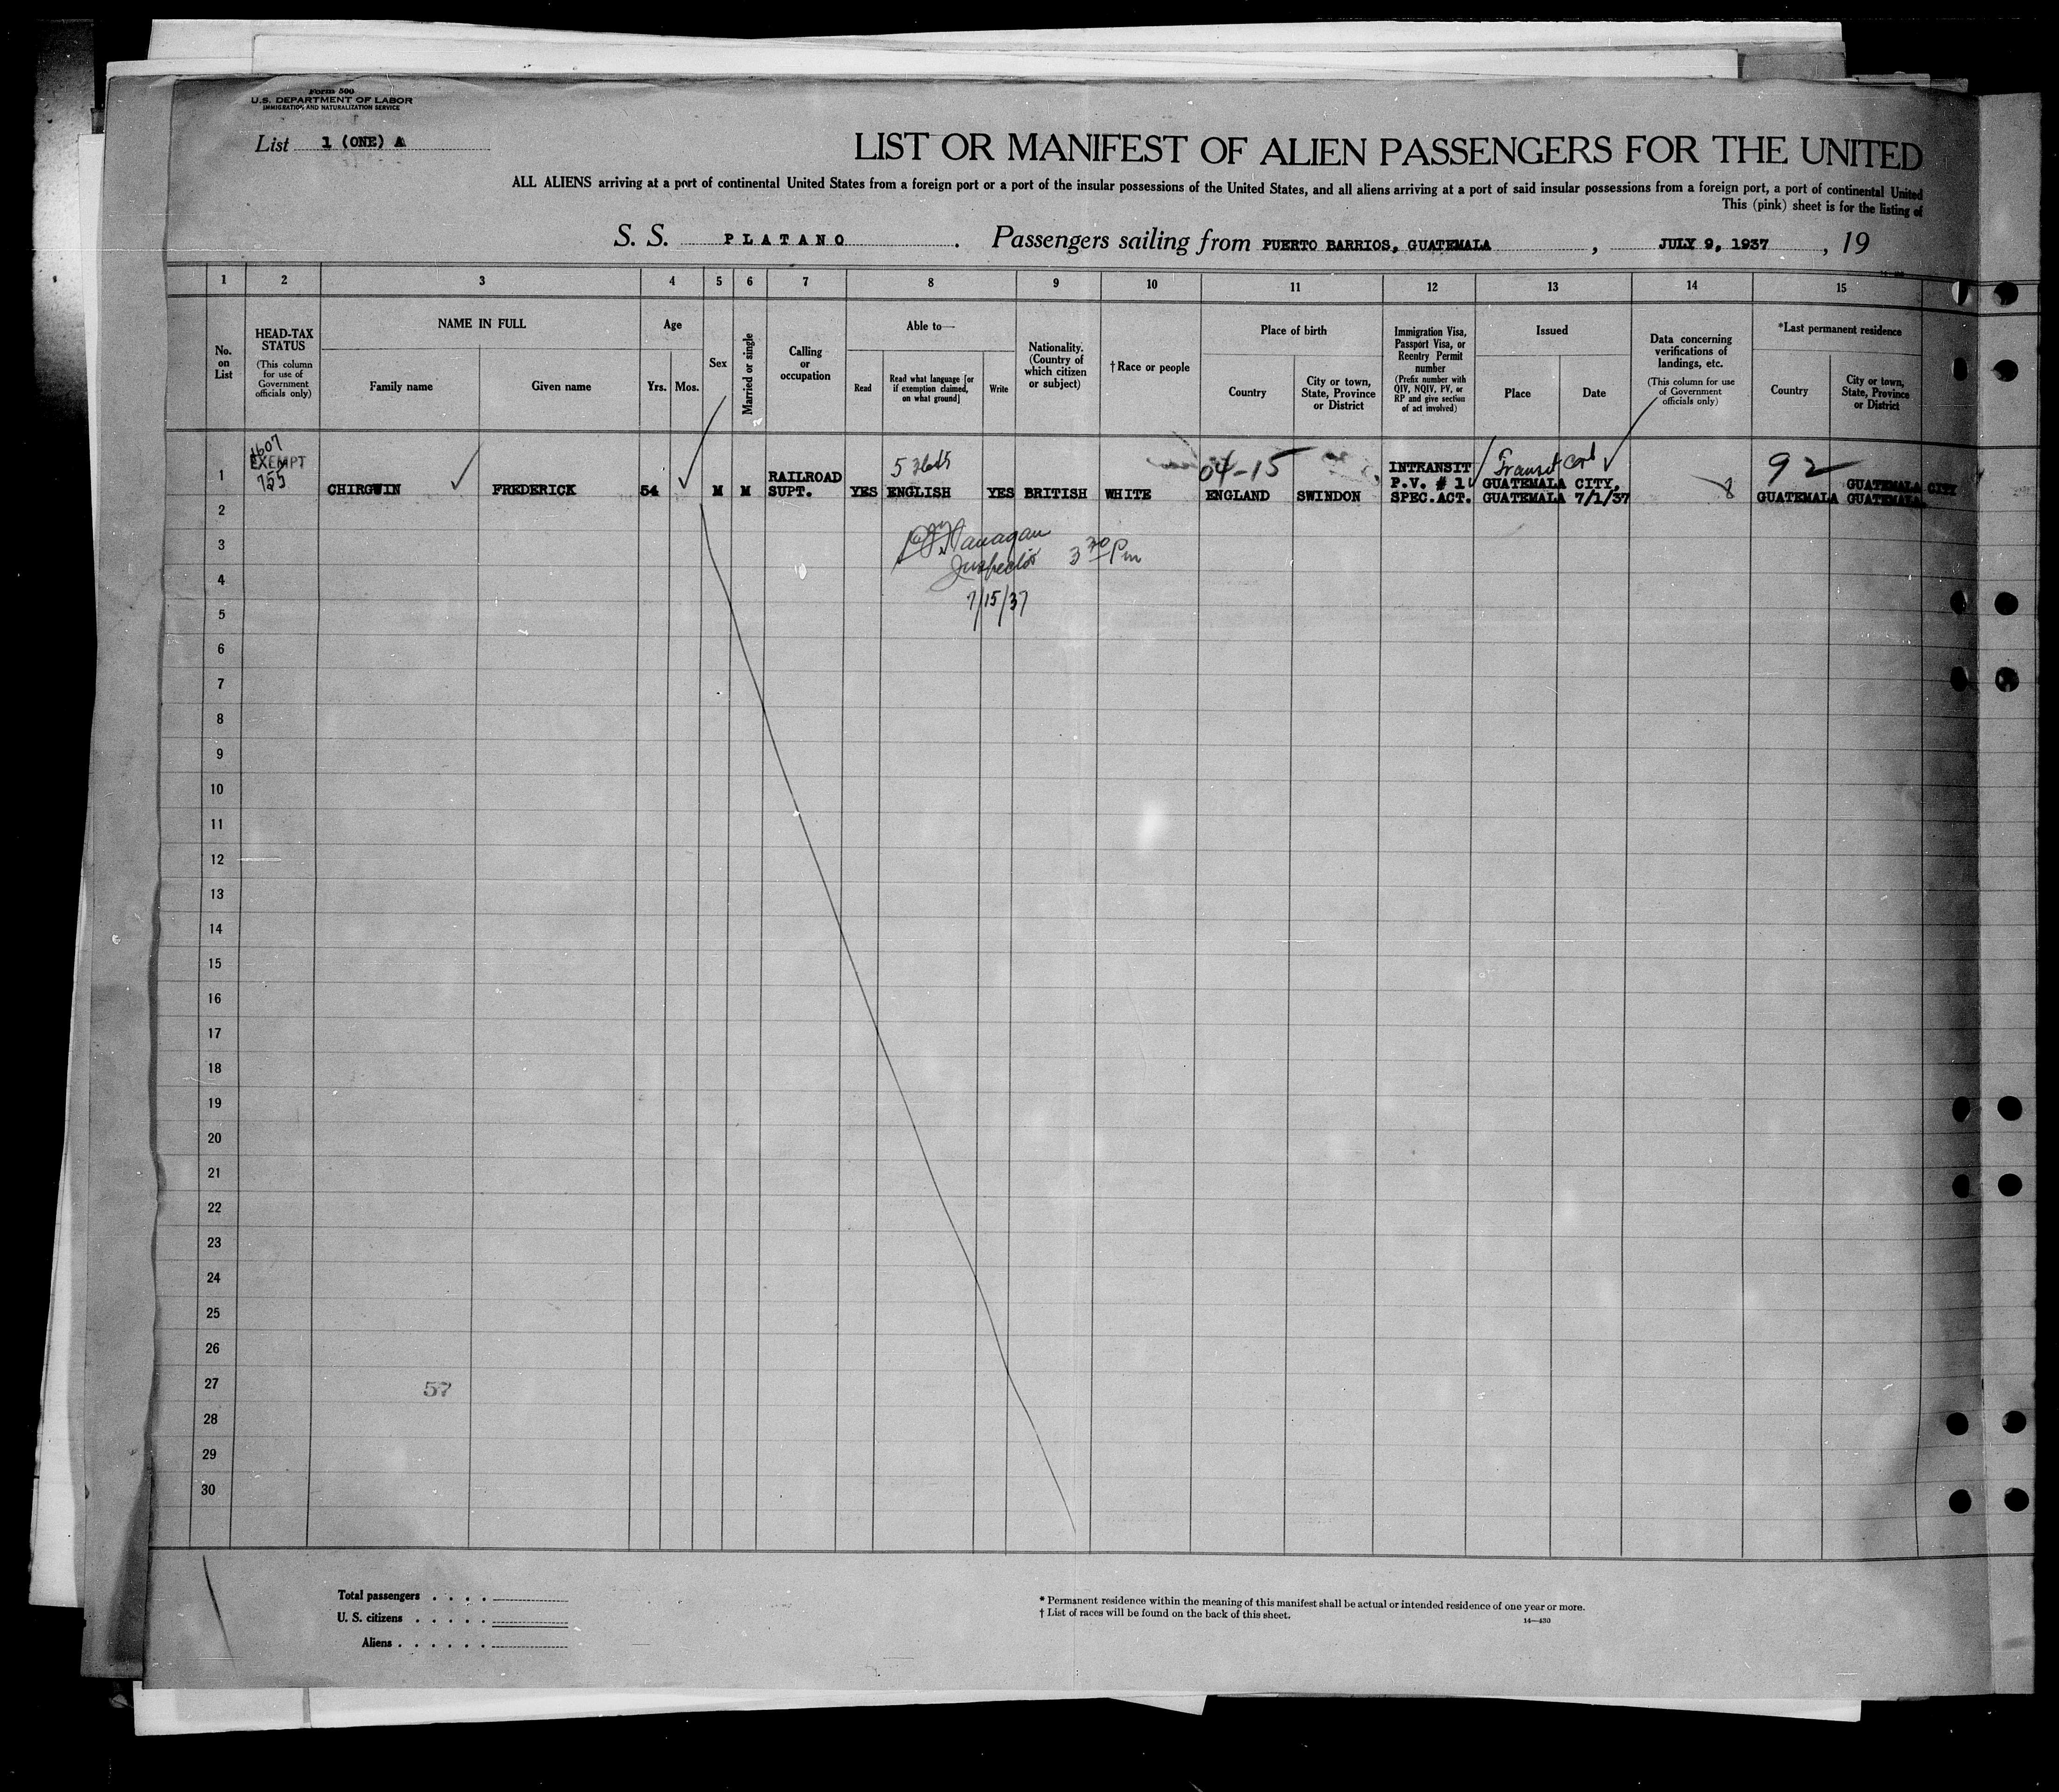 Form 500
U.S. DEPARTMENT OF LABOR
IMMIGRATION AND NATURALIZATION SERVICE
List 1 (ONE) A
LIST OR MANIFEST OF ALIEN PASSENGERS FOR THE UNITED
ALL ALIENS arriving at a port of continental United States from a foreign port or a port of the insular possessions of the United States, and all aliens arriving at a port of said insular possessions from a foreign port, a port of continental United
This (pink) sheet is for the listing of
S. S. PLATANO . Passengers sailing from PUERTO BARRIOS, GUATEMALA , JULY 9, 1937 , 19
1 2 3 4 5 6 7 8 9 10 11 12 13 14 15
No. on List
HEAD-TAX STATUS
(This column for use of Government officials only)
NAME IN FULL
Family name
Given name
Age
Yrs.
Mos.
Sex
Married or single
Calling or occupation
Able to—
Read
Read what language [or if exemption claimed, on what ground]
Write
Nationality. (Country of which citizen or subject)
†Race or people
Place of birth
Country
City or town, State, Province or District
Immigration Visa, Passport Visa, or Reentry Permit number
(Prefix number with QIV, NQIV, PV, or RP and give section of act involved)
Issued
Place
Date
Data concerning verifications of landings, etc.
(This column for use of Government officials only)
*Last permanent residence
Country
City or town, State, Province or District
1 EXEMPT CHIRGWIN FREDERICK 54 M M RAILROAD SUPT. YES ENGLISH YES BRITISH WHITE 04-15 ENGLAND SWINDON INTRANSIT P.V. # 1 SPEC.ACT. Transit GUATEMALA CITY, GUATEMALA 7/1/37 92 GUATEMALA GUATEMALA CITY GUATEMALA
2
3
Inspector 3 30 Pm
4
7/15/37
5
6
7
8
9
10
11
12
13
14
15
16
17
18
19
20
21
22
23
24
25
26
27
57
28
29
30
Total passengers
U. S. citizens
Aliens
* Permanent residence within the meaning of this manifest shall be actual or intended residence of one year or more.
† List of races will be found on the back of this sheet.
14—430